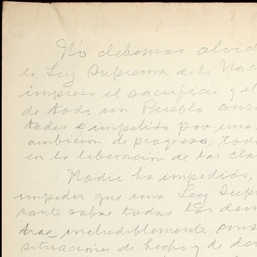 No debemos olvid
la Ley Suprema de la Na
impreso el sacrificio y el
de todo un Pueblo
tadas e impelido por una
ambición de progreso, tod
en la liberación de las cla
Nadie ha impedido,
impedir que una Ley Sup
sante sobre todas las dem
trae ineludiblemente con
situaciones de hecho y de de